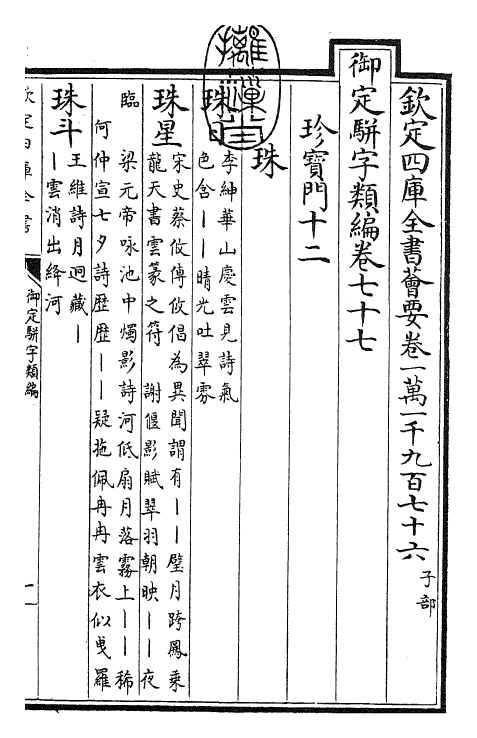 欽定四庫全書薈要卷一萬一千九百七十六 子部
御定駢字類編卷七十七
珍寶門十二
珠
珠日 李紳華山慶雲見詩氣
色含丨丨晴光吐翠雰
珠星 宋史蔡攸傳攸倡為異聞謂有丨丨璧月跨鳳乘
龍天書雲篆之符 謝偃影賦翠羽朝映丨丨夜
臨 梁元帝咏池中燭影詩河低扇月落霧上丨丨稀
何仲宣七夕詩歴歴丨丨疑拖佩冉冉雲衣似曳羅
珠斗 王維詩月迥藏丨
丨雲消出絳河
欽定四庫全書
御定駢字類編
一